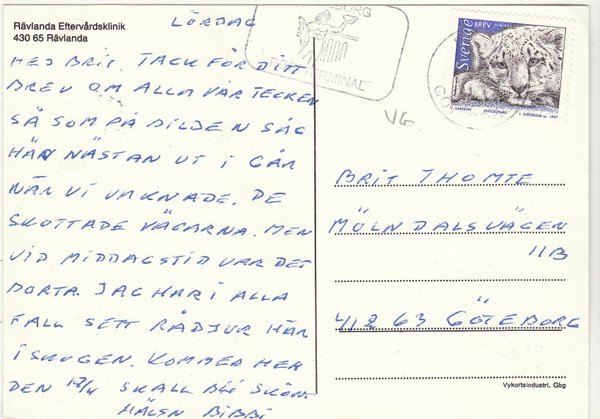 Rävlanda Eftervårdsklinik
430 65 Rävlanda
LÖRDAG
HEJ BRIT. TACK FÖR DITT
BREV OM ALLA VÅRTECKEN
SÅ SOM PÅ BILDEN SÅG
HÄR NÄSTAN UT I GÅR
NÄR VI VAKNADE. DE
SKOTTADE VÄGARNA. MEN
VID MIDDAGSTID VAR DET
BORTA. JAG HAR I ALLA
FALL SETT RÅDJUR HÄR
I SKOGEN. KOMMER HEM
DEN 17/4 SKALL BLI SKÖNT
HÄLSN BIBBI
BORG
TERMINAL
Sverige BREV
1997
VG
BRIT THOMTE
MÖLNDALSVÄGEN
11B
412 63 GÖTEBORG
Vykortsindustri, Gbg